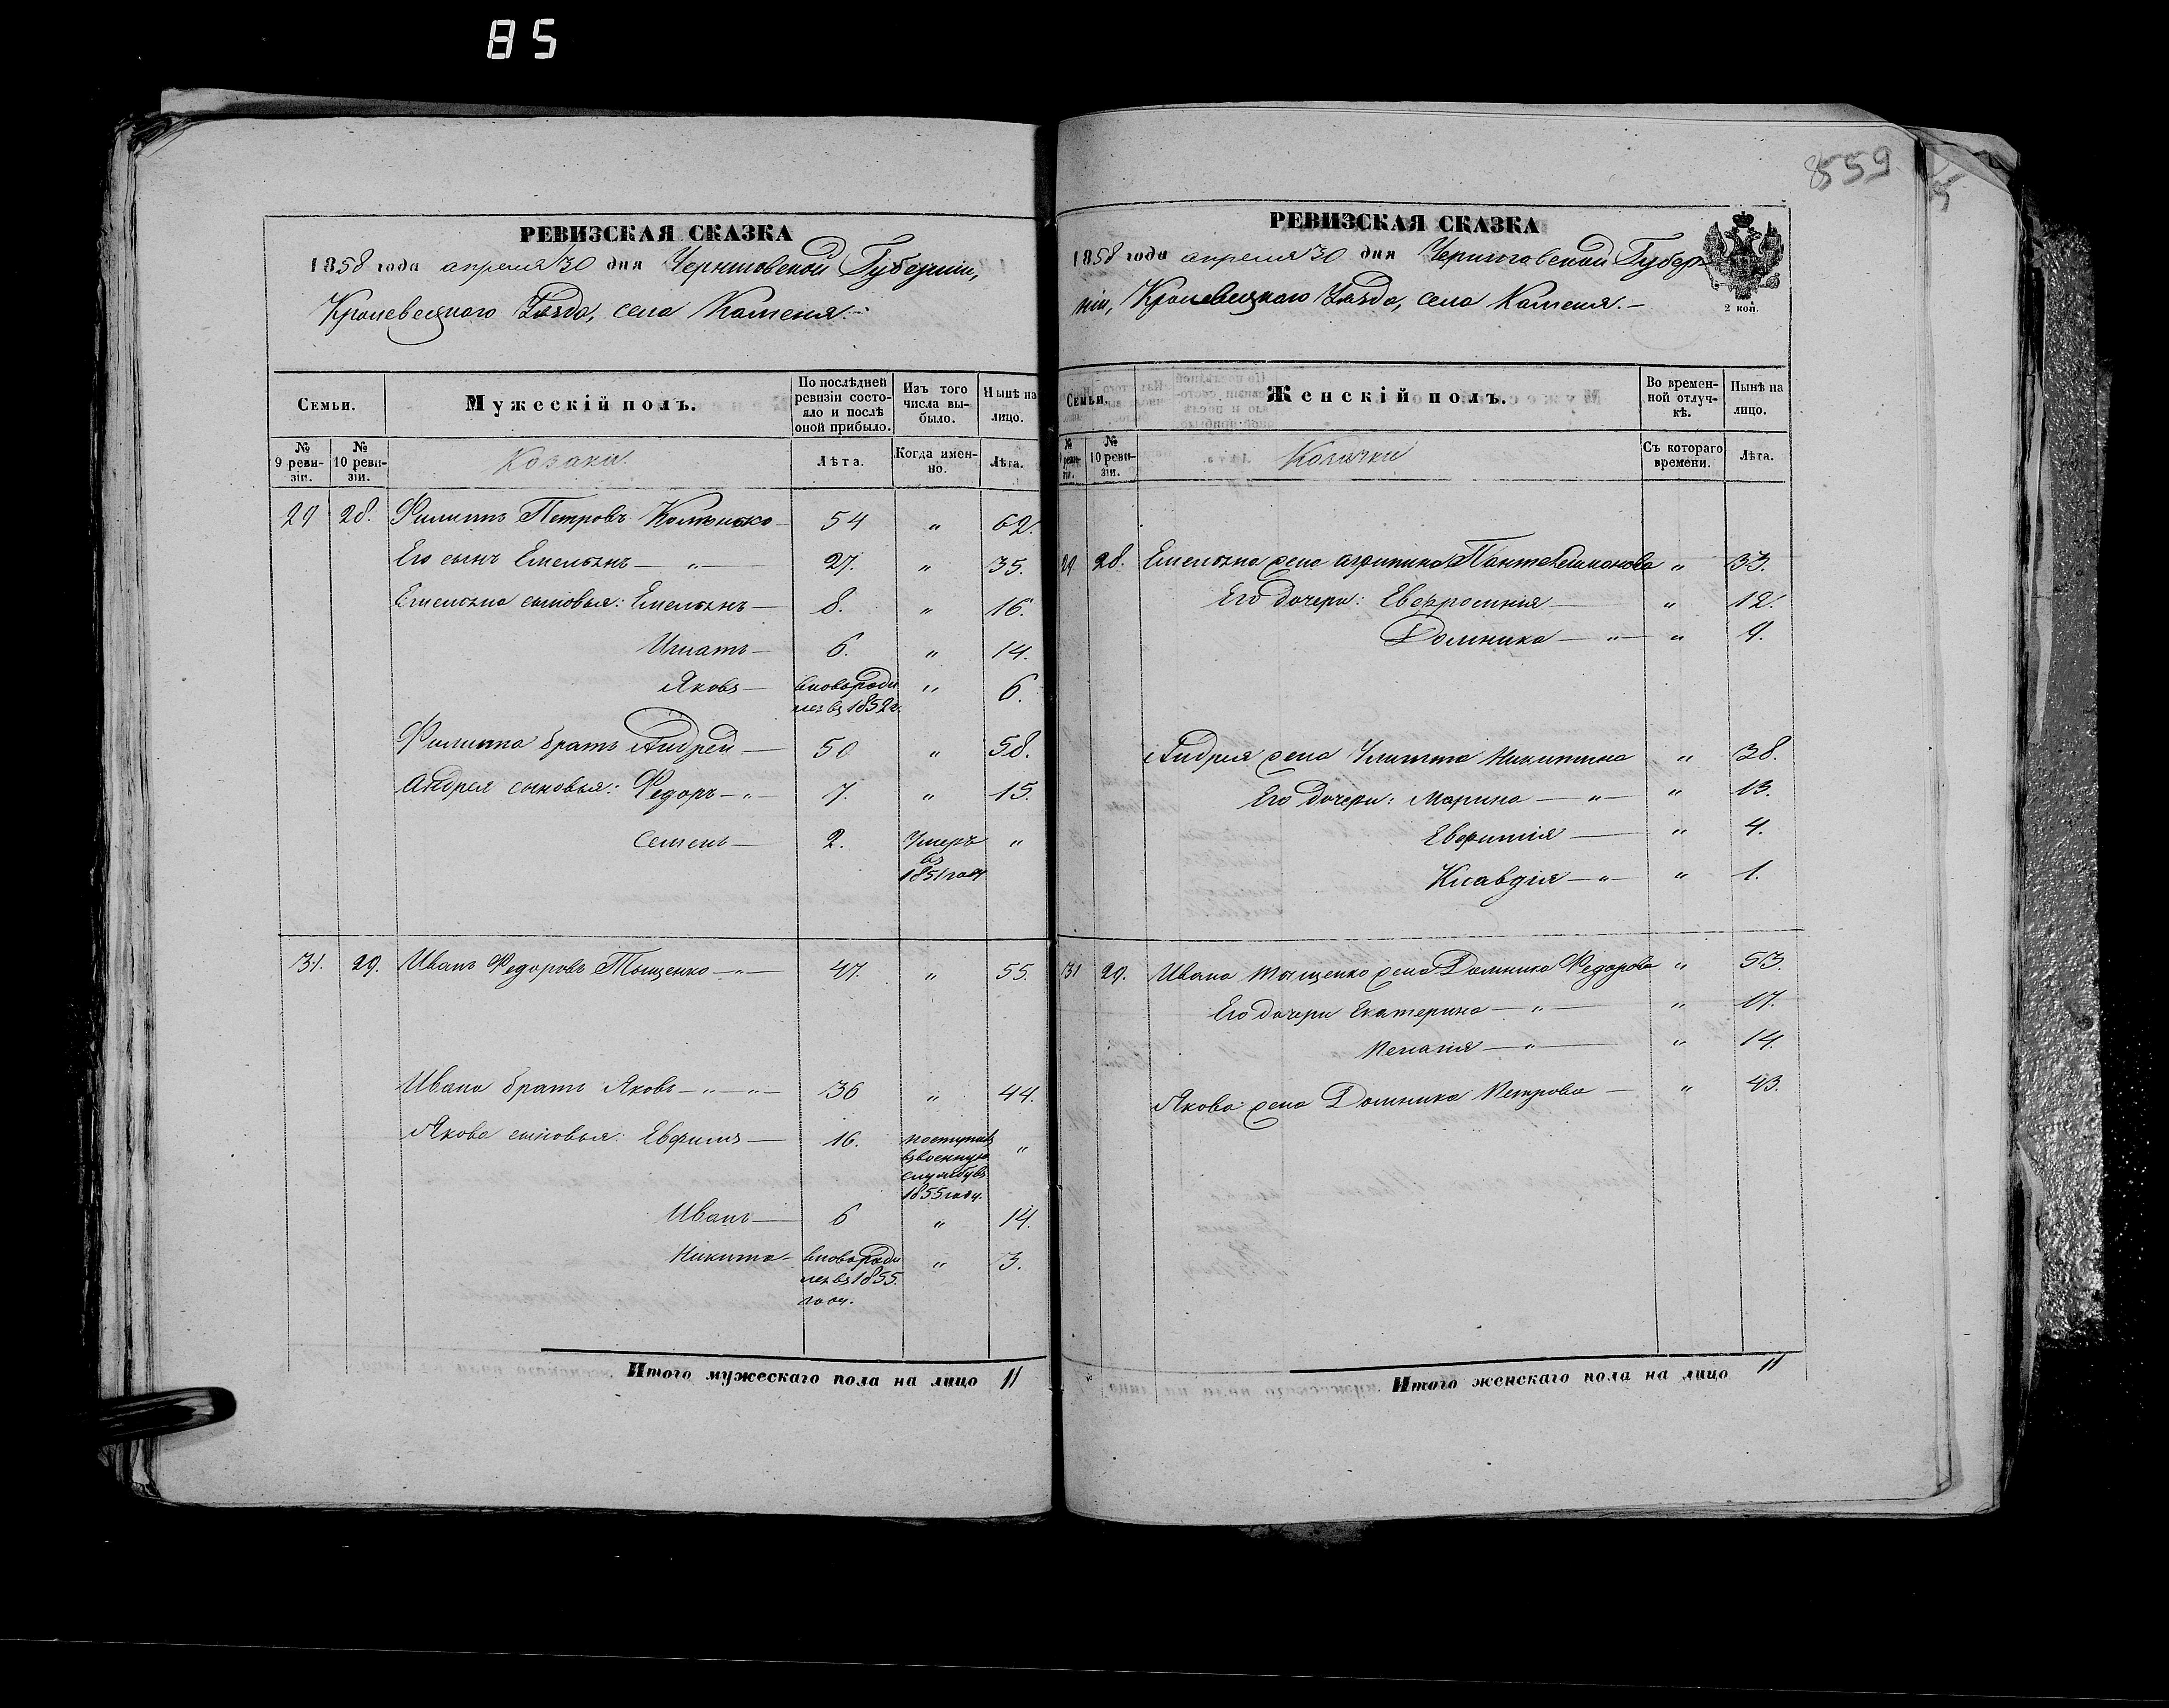 85
859
РЕВИЗСКАЯ СКАЗКА
1858 года апреля 30 дня Черниговской Губерніи,
Кролевецкого Уѣзда, села Каменя.-
Семьи.
Мужескій полъ.
По послѣдней ревизіи состояло и послѣ оной прибыло.
Изъ того числа выбыло.
Нынѣ на лицо.
№ 9 ревизіи.
№ 10 ревизіи.
Козаки.
Лѣта.
Когда именно.
Лѣта.
29 28. Филиппъ Петровъ 54 " 62.
Его сынъ Емельянъ — " — 27. " 35.
Емельяна сыновья: Емельянъ — 8. " 16.
Игнатъ — 6. " 14.
Яковъ — вновь роди " 6.
лся въ 1852 г.
Филиппа братъ Андрей — 50 " 58.
Андрея сыновья: Федоръ — " — 7. " 15.
Семенъ — 2. Умеръ "
въ
1851 году
31. 29. Иванъ Федоровъ Тыщенко — " — 47. " 55.
Ивана братъ Яковъ — " — " — 36 " 44.
Якова сыновья: Евфимъ — 16. поступилъ "
въ военную
службу въ
1855 году.
Иванъ — 6 " 14.
Никита — вновь роди " 3.
лся въ 1855
году.
Итого мужескаго пола на лицо 11
РЕВИЗСКАЯ СКАЗКА
1858 года апреля 30 дня Черниговской Губер-
ніи, Кролевецкого Уѣзда, села Каменя.-
2 коп.
Семьи.
Женскій полъ.
Во временной отлучкѣ.
Нынѣ на лицо.
№ 9 ревизіи.
№ 10 ревизіи.
Козачки
Съ котораго времени.
Лѣта.
29 28. Емельяна жена Агрипина Пантелимонова " 33.
Его дочери: Евфросинія — " 12.
Домника — " — " 9.
Андрея жена Улита Никитина " 38.
Его дочери: Марина — " — " 13.
Евфимія — " 4.
Клавдія — " — " 1.
31 29. Ивана Тыщенко жена Домника Федорова " 53.
Его дочери Екатерина — " — " 17.
Пелагія — " — " 14.
Якова жена Домника Петрова — " 43.
Итого женскаго пола на лицо 11